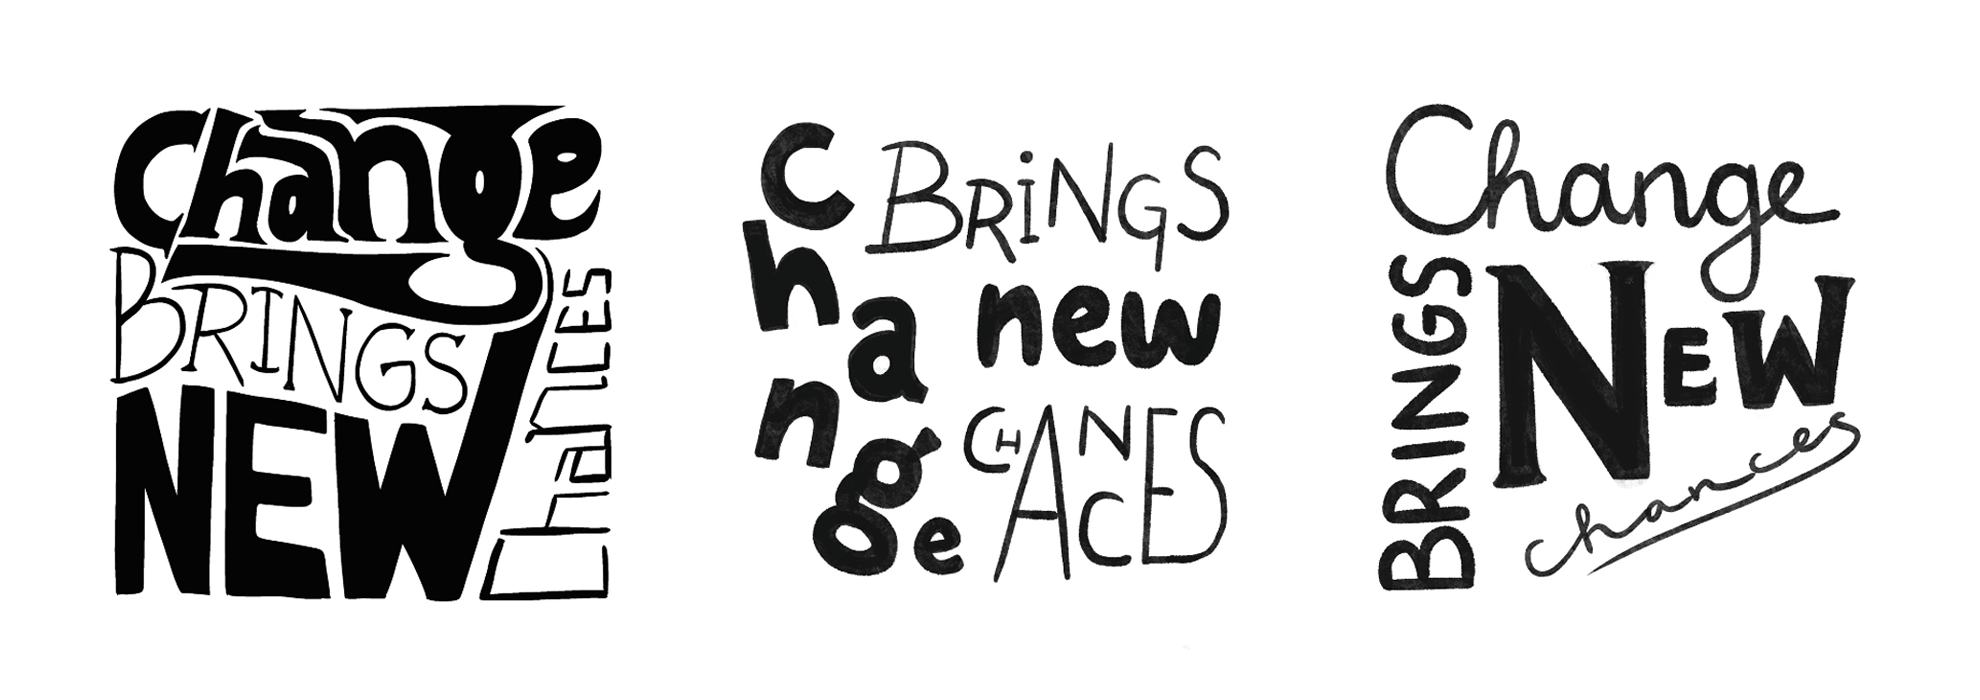 Change
BRINGS
NEW
chances
change
BRiNGS
new
CHANCES
Change
BRINGS
NEW
chances